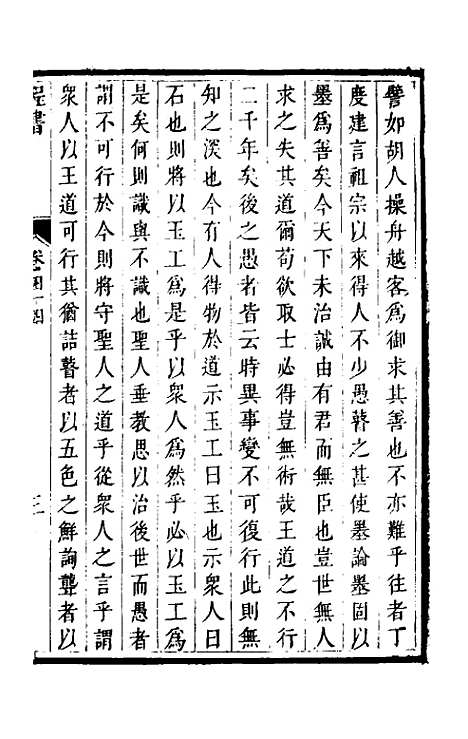 譬如胡人操舟越客為御求其善也不亦難乎往者丁
度建言祖宗以來得人不少愚瞽之甚使墨論墨固以
墨為善矣今天下未治誠由有君而無臣也豈世無人
求之失其道爾苟欲取士必得豈無術哉王道之不行
二千年矣後之愚者皆云時異事變不可復行此則無
知之深也今有人得物於道示玉工曰玉也示衆人曰
石也則將以玉工為是乎以衆人為然乎必以玉工為
是矣何則識與不識也聖人垂教思以治後世而愚者
謂不可行於今則將守聖人之道乎從衆人之言乎謂
衆人以王道可行其猶詰瞽者以五色之鮮詢聾者以
程書
卷四十四
三